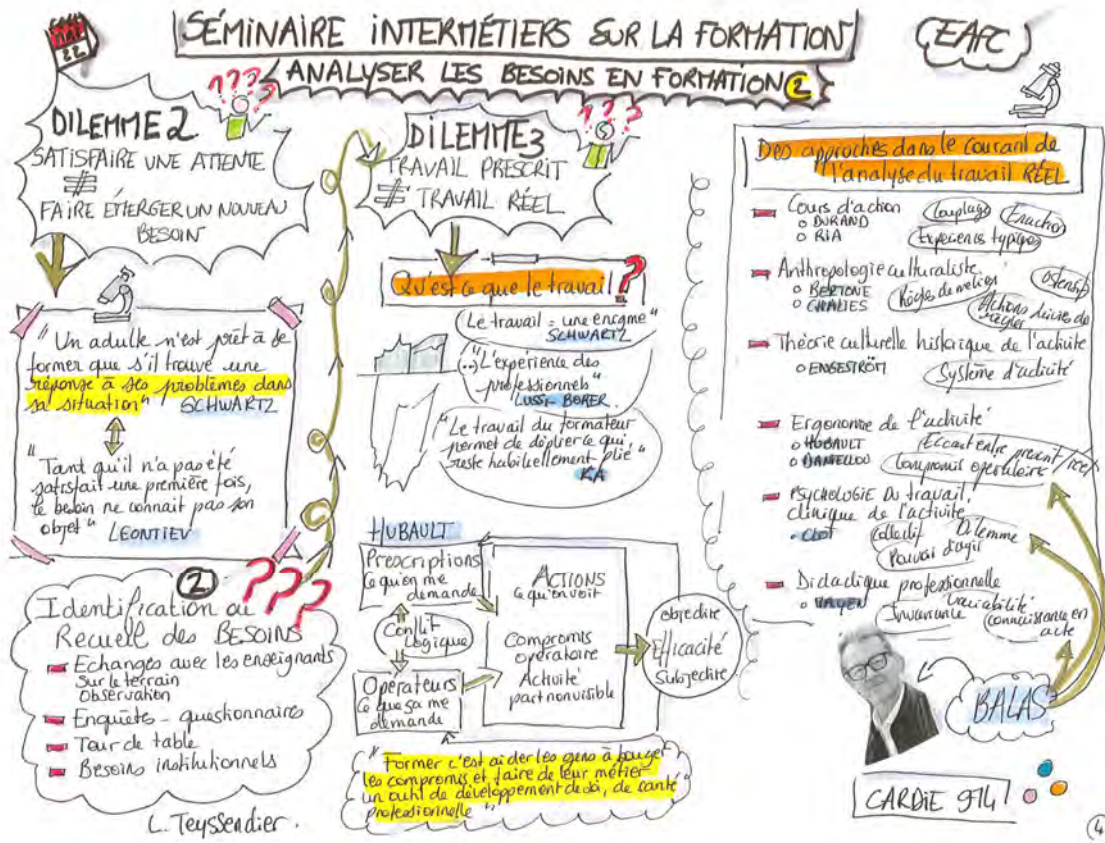 MAI
22
SÉMINAIRE INTERMÉTIERS SUR LA FORMATION
EAFC
ANALYSER LES BESOINS EN FORMATION 2
???
DILEMME 2
SATISFAIRE UNE ATTENTE
≠
FAIRE ÉMERGER UN NOUVEAU
BESOIN
" Un adulte n'est prêt à se
former que s'il trouve une
réponse à ses problèmes dans
sa situation "
SCHWARTZ
" Tant qu'il n'a pas été
satisfait une première fois,
le besoin ne connait pas son
objet "
LEONTIEV
2
???
Identification ou
Recueil des BESOINS
Echanges avec les enseignants
Sur le terrain
Observation
Enquêtes - questionnaires
Tour de table
Besoins institutionnels
L. Teyssendier.
???
DILEMME 3
TRAVAIL PRESCRIT
≠ TRAVAIL RÉEL
Qu'est ce que le travail ?
Le travail = une enigme "
SCHWARTZ
(..) "L'expérience des
professionnels "
LUSSI BORER
"Le travail du formateur
permet de déplier ce qui
reste habituellement plié "
HUBAULT
Prescriptions
Ce qu'on me
demande
Conflit
logique
Opérateurs
Ce que ça me
demande
ACTIONS
Ce qu'on voit
Compromis
opératoire
Activité
part non visible
Objectité
Efficacité
Subjectité
" Former c'est aider les gens à bouger
les compromis et faire de leur métier
un outil de développement de soi, de santé
professionnelle "
Des approches dans le courant de
l'analyse du travail RÉEL
Cours d'action
DURAND
RIA
Couplage
Enaction
Expériences typiques
Anthropologie culturaliste
BERTONE
CHALIES
Règles de métier
Ostensif
Actions suivies de
règles
Théorie culturelle historique de l'activité
ENGESTRÖM
Système d'activité
Ergonomie de l'activité
HUBAULT
DANIELLOU
Ecart entre prescrit/réel
Compromis opératoire
PSYCHOLOGIE DU travail,
clinique de l'activité
CLOT
Collectif
Dilemme
Pouvoir d'agir
Didactique professionnelle
Invariance
Variabilité
connaissance en
acte
BALAS
CARDIE 974
4